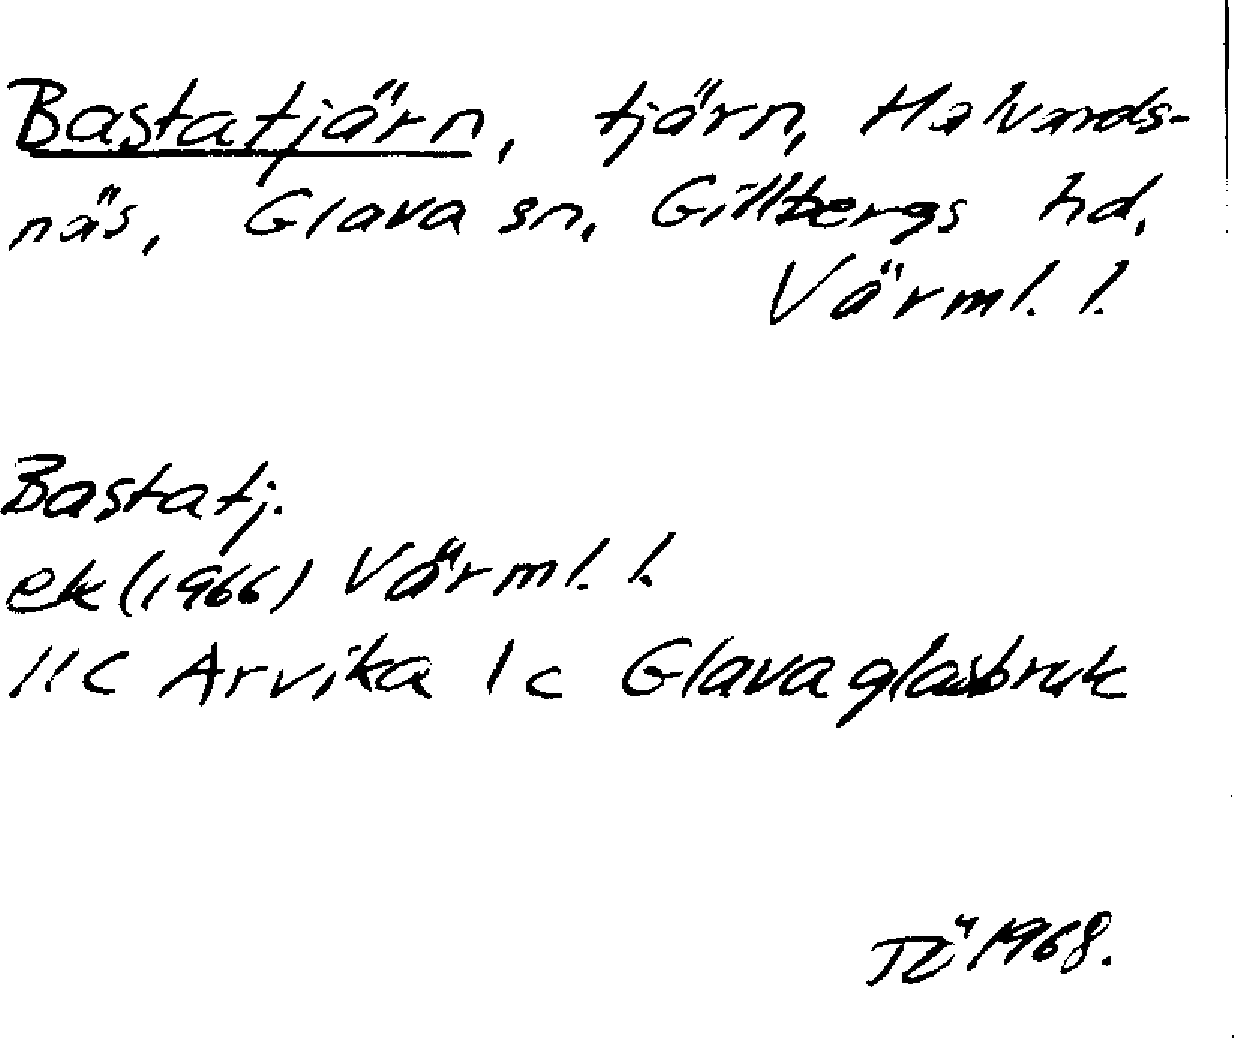 Bastatjärn, tjärn, Halvards-
näs, Glava sn, Gillbergs hd,
Värml. l.
Bastatj.
ek (1966) Värml. l.
11C Arvika 1c Glava glasbruk
1968.